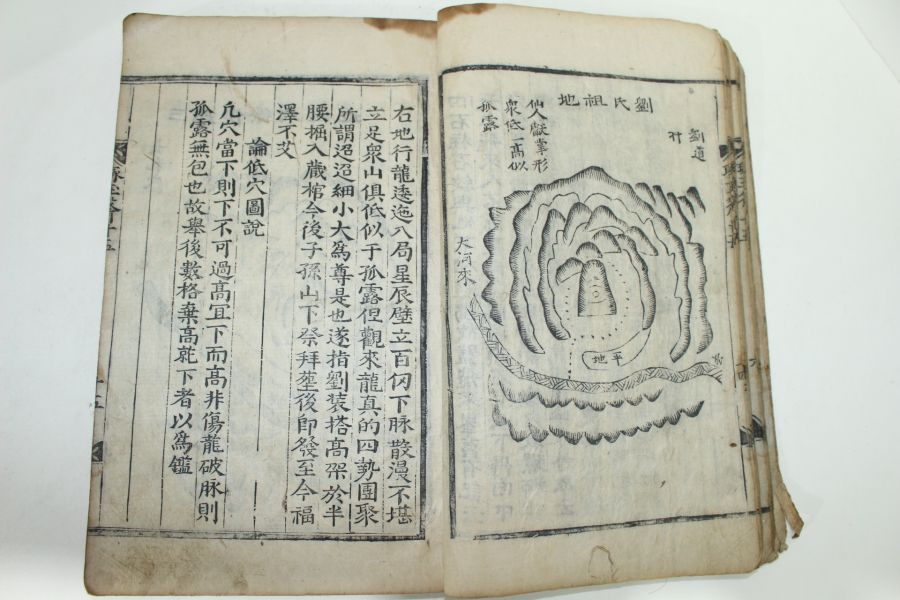 劉氏祖地
劉道
仙人獻掌形
衆低一高似
孤露
大河來
平地
右地行龍逶迤入局星辰壁立百仞下脉散漫不堪
立足衆山俱低似于孤露但觀來龍真的四勢團聚
所謂迢迢細小大爲尊是也遂指劉裝搭高架於半
腰掘入藏棺令後子孫山下祭拜塟後即發至今福
澤不艾
論低穴圖說
凢穴當下則下不可過高冝下而高非傷龍破脉則
孤露無包也故舉後數格棄高就下者以爲鑑